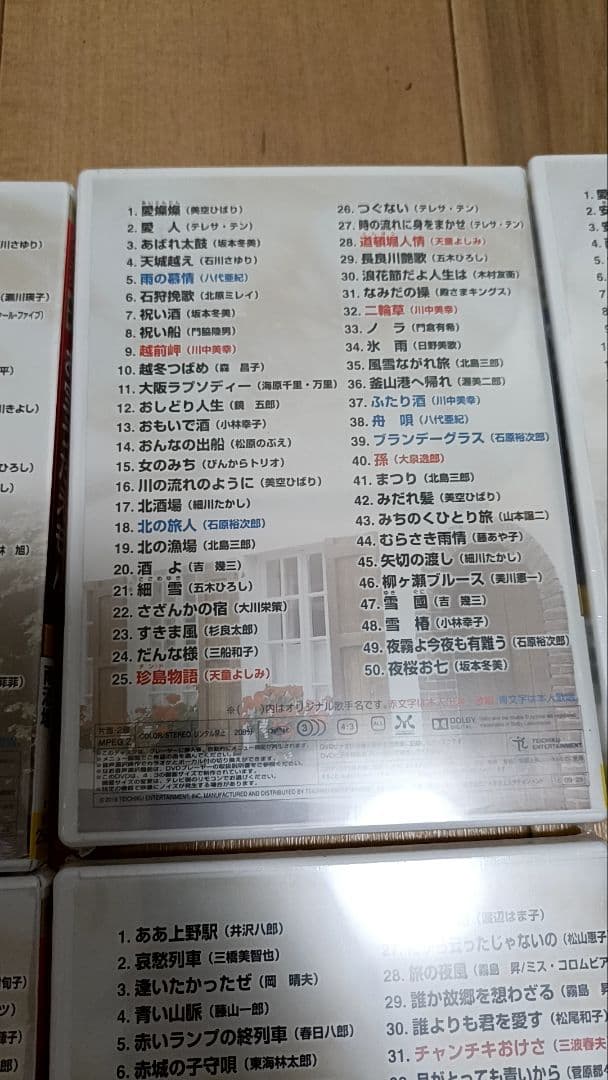 川さゆり)
1. 愛燦燦 (美空ひばり)
2. 愛 人 (テレサ・テン)
3. あばれ太鼓 (坂本冬美)
4. 天城越え (石川さゆり)
5. 雨の慕情 (八代亜紀)
6. 石狩挽歌 (北原ミレイ)
7. 祝い酒 (坂本冬美)
8. 祝い船 (門脇陸男)
9. 越前岬 (川中美幸)
10. 越冬つばめ (森 昌子)
11. 大阪ラプソディー (海原千里・万里)
12. おしどり人生 (鏡 五郎)
13. おもいで酒 (小林幸子)
14. おんなの出船 (松原のぶえ)
15. 女のみち (ぴんからトリオ)
16. 川の流れのように (美空ひばり)
17. 北酒場 (細川たかし)
18. 北の旅人 (石原裕次郎)
19. 北の漁場 (北島三郎)
20. 酒 よ (吉 幾三)
21. 細 雪 (五木ひろし)
22. さざんかの宿 (大川栄策)
23. すきま風 (杉良太郎)
24. だんな様 (三船和子)
25. 珍島物語 (天童よしみ)
26. つぐない (テレサ・テン)
27. 時の流れに身をまかせ (テレサ・テン)
28. 道頓堀人情 (天童よしみ)
29. 長良川艶歌 (五木ひろし)
30. 浪花節だよ人生は (木村友衛)
31. なみだの操 (殿さまキングス)
32. 二輪草 (川中美幸)
33. ノ ラ (門倉有希)
34. 氷 雨 (日野美歌)
35. 風雪ながれ旅 (北島三郎)
36. 釜山港へ帰れ (渥美二郎)
37. ふたり酒 (川中美幸)
38. 舟 唄 (八代亜紀)
39. ブランデーグラス (石原裕次郎)
40. 孫 (大泉逸郎)
41. まつり (北島三郎)
42. みだれ髪 (美空ひばり)
43. みちのくひとり旅 (山本譲二)
44. むらさき雨情 (藤あや子)
45. 矢切の渡し (細川たかし)
46. 柳ヶ瀬ブルース (美川憲一)
47. 雪 國 (吉 幾三)
48. 雪 椿 (小林幸子)
49. 夜霧よ今夜も有難う (石原裕次郎)
50. 夜桜お七 (坂本冬美)
※( )内はオリジナル歌手名です。
MPEG 2
COLOR/STEREO
4:3
ALL
DOLBY
TEICHIKU ENTERTAINMENT
1. ああ上野駅 (井沢八郎)
2. 哀愁列車 (三橋美智也)
3. 逢いたかったぜ (岡 晴夫)
4. 青い山脈 (藤山一郎)
5. 赤いランプの終列車 (春日八郎)
6. 赤城の子守唄 (東海林太郎)
(渡辺はま子)
ったじゃないの (松山恵子)
28. 旅の夜風 (霧島 昇/ミス・コロムビア
29. 誰か故郷を想わざる (霧島 昇
30. 誰よりも君を愛す (松尾和子
31. チャンチキおけさ (三波春夫
月がとっても青いから (菅原都々